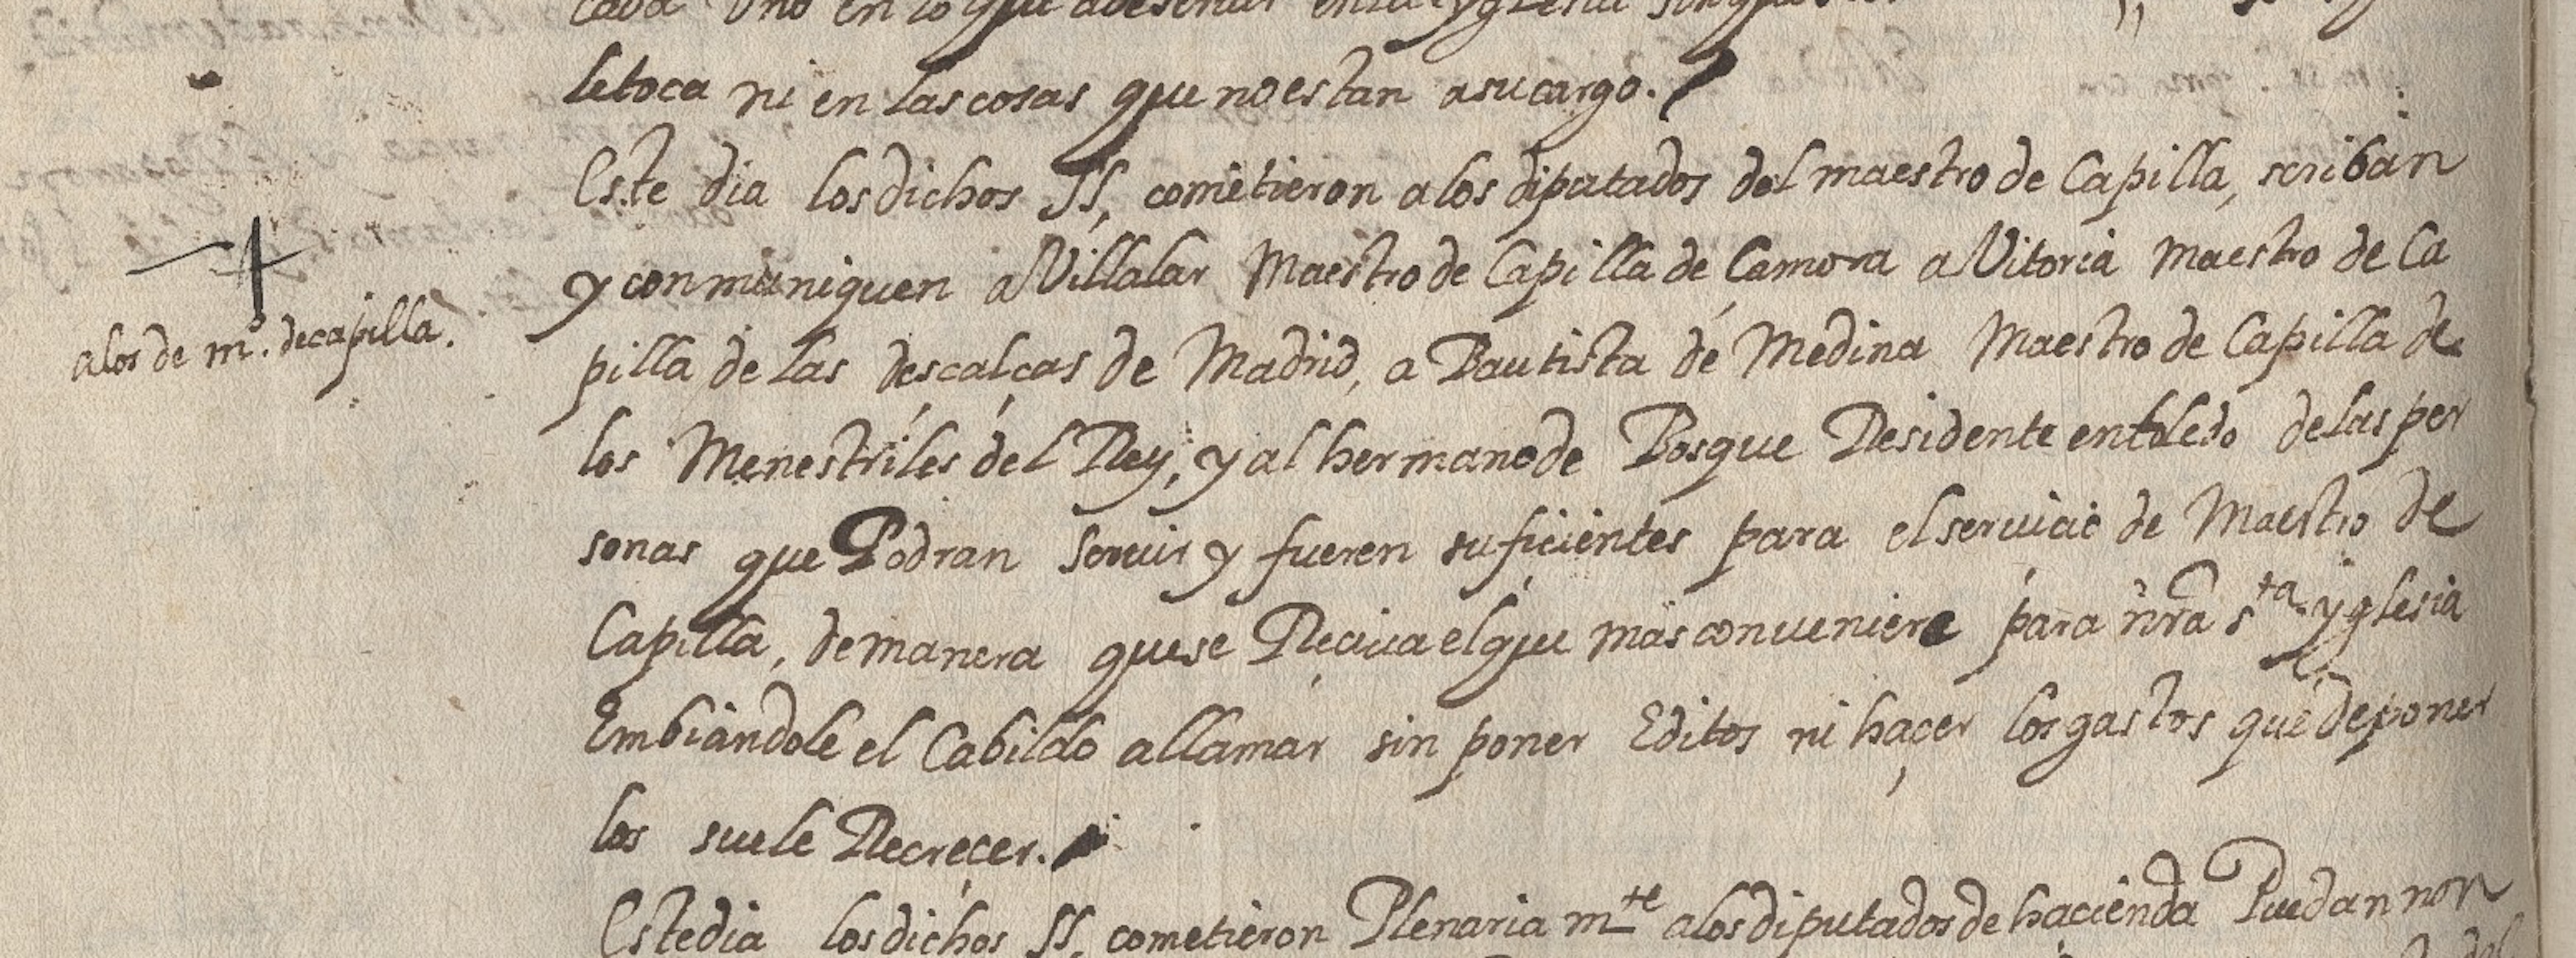 cada Uno en lo que a de seruir en la yglesia sin
le toca ni en las cosas que no estan a su cargo.
Este dia los dichos SS, cometieron a los diputados del maestro de Capilla, scriban
y conmuniquen a Villalar Maestro de Capilla de Çamora a Vitoria Maestro de Ca
alos de m.º de capilla.
pilla de las descalças de Madrid, a Bautista de Medina Maestro de Capilla de
los Menestriles del Rey, y al hermano de Bosque Residente en toledo de las per
sonas que Podran seruir y fueren suficientes para el seruicio de Maestro de
Capilla, de manera que se Reciua el que mas conueniere para nr̃a s.ta yglesia
Embiandole el Cabildo a llamar sin poner Editos ni haçer los gastos que de poner
los suele Recreçer.
Este dia los dichos SS, cometieron Plenaria m.te a los diputados de hacienda Puedan non